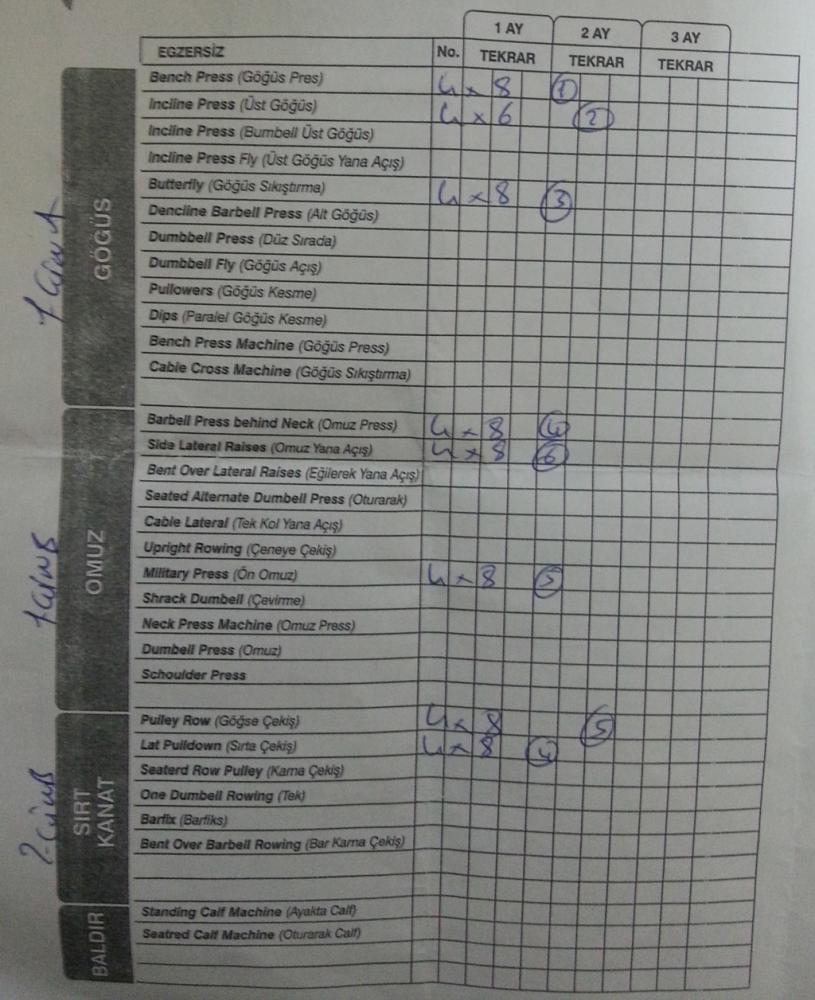 1 AY 2 AY 3 AY
EGZERSİZ No. TEKRAR TEKRAR TEKRAR
GÖĞÜS
Bench Press (Göğüs Pres) 4 x 8 1
Incline Press (Üst Göğüs) 4 x 6 2
Incline Press (Bumbell Üst Göğüs)
Incline Press Fly (Üst Göğüs Yana Açış)
Butterfly (Göğüs Sıkıştırma) 4 x 8 3
Dencline Barbell Press (Alt Göğüs)
Dumbbell Press (Düz Sırada)
Dumbbell Fly (Göğüs Açış)
Pullowers (Göğüs Kesme)
Dips (Paralel Göğüs Kesme)
Bench Press Machine (Göğüs Press)
Cable Cross Machine (Göğüs Sıkıştırma)
OMUZ
Barbell Press behind Neck (Omuz Press) 4 x 8 4
Side Lateral Raises (Omuz Yana Açış) 4 x 8 6
Bent Over Lateral Raises (Eğilerek Yana Açış)
Seated Alternate Dumbell Press (Oturarak)
Cable Lateral (Tek Kol Yana Açış)
Upright Rowing (Çeneye Çekiş)
Military Press (Ön Omuz) 4 x 8 5
Shrack Dumbell (Çevirme)
Neck Press Machine (Omuz Press)
Dumbell Press (Omuz)
Schoulder Press
SIRT KANAT
Pulley Row (Göğse Çekiş) 4 x 8 5
Lat Pulldown (Sırta Çekiş) 4 x 8 4
Seaterd Row Pulley (Karna Çekiş)
One Dumbell Rowing (Tek)
Barfix (Barfiks)
Bent Over Barbell Rowing (Bar Karna Çekiş)
BALDIR
Standing Calf Machine (Ayakta Calf)
Seatred Calf Machine (Oturarak Calf)